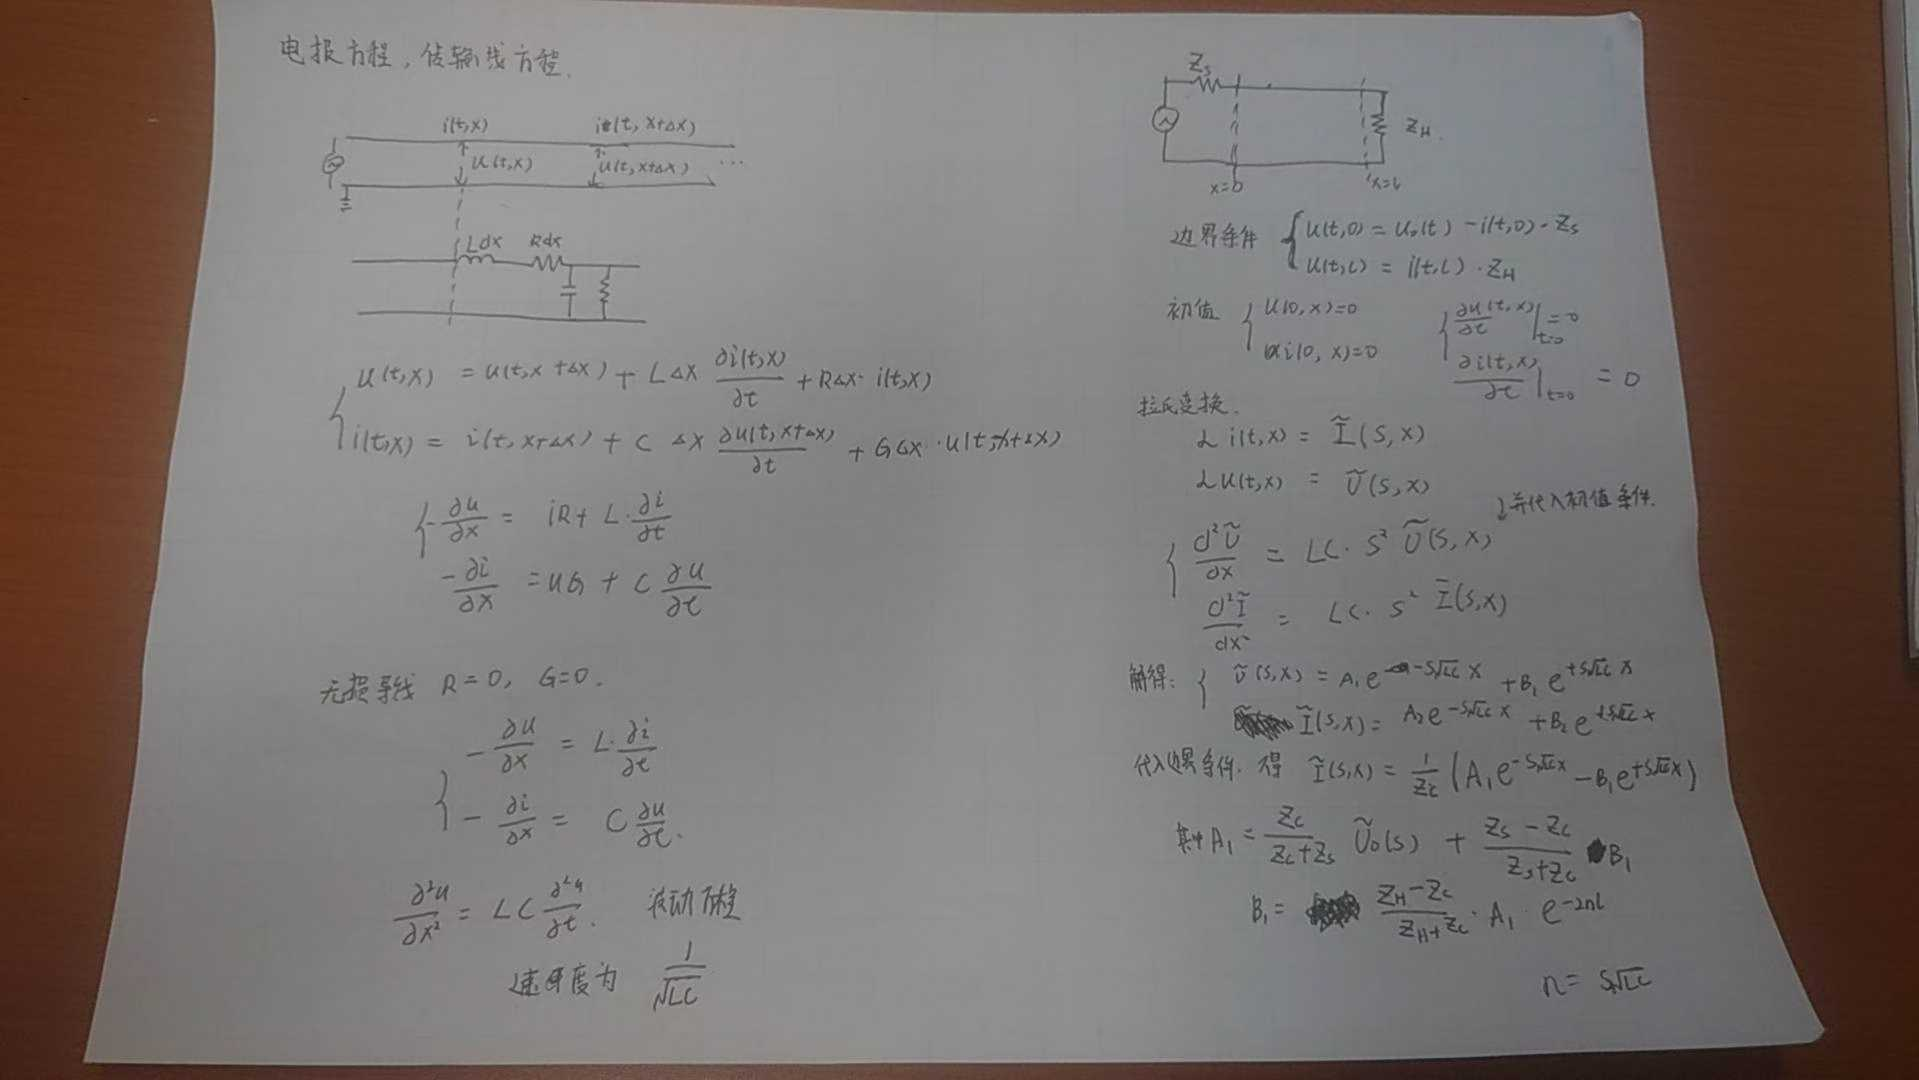 电报方程，传输线方程.
i(t,x)
i(t, x+Δx)
u(t,x)
u(t,x+Δx)
...
Ldx Rdx
u(t,x) = u(t,x+Δx) + LΔx ∂i(t,x)/∂t + RΔx· i(t,x)
i(t,x) = i(t, x+Δx) + C Δx ∂u(t,x+Δx)/∂t + GΔx · u(t,x+Δx)
-∂u/∂x = iR + L·∂i/∂t
-∂i/∂x = uG + C ∂u/∂t
无损导线 R=0, G=0.
-∂u/∂x = L·∂i/∂t
-∂i/∂x = C ∂u/∂t.
∂²u/∂x² = LC ∂²u/∂t. 波动方程
速度为 1/√LC
Zs
ZH.
x=0
x=L
边界条件 { u(t,0) = U0(t) - i(t,0)·Zs
u(t,L) = i(t,L)·ZH
初值 { u(0,x)=0 { ∂u(t,x)/∂t |t=0 =0
i(0,x)=0 ∂i(t,x)/∂t |t=0 = 0
拉氏变换.
ℒ i(t,x) = Ĩ(s,x)
ℒ u(t,x) = Ũ(s,x)
并代入初值条件.
d²Ũ/∂x = LC· s² Ũ(s,x)
d²Ĩ/dx² = LC· s² Ĩ(s,x)
解得: { Ũ(s,x) = A₁e^(-s√LC x) + B₁e^(+s√LC x)
Ĩ(s,x) = A₂e^(-s√LC x) + B₂e^(+s√LC x)
代入边界条件. 得 Ĩ(s,x) = 1/Zc (A₁e^(-s√LC x) - B₁e^(+s√LC x))
其中 A₁ = Zc/(Zc+Zs) Ũ0(s) + (Zs-Zc)/(Zs+Zc) B₁
B₁ = (ZH-Zc)/(ZH+Zc) · A₁ · e^(-2nl)
n = s√LC